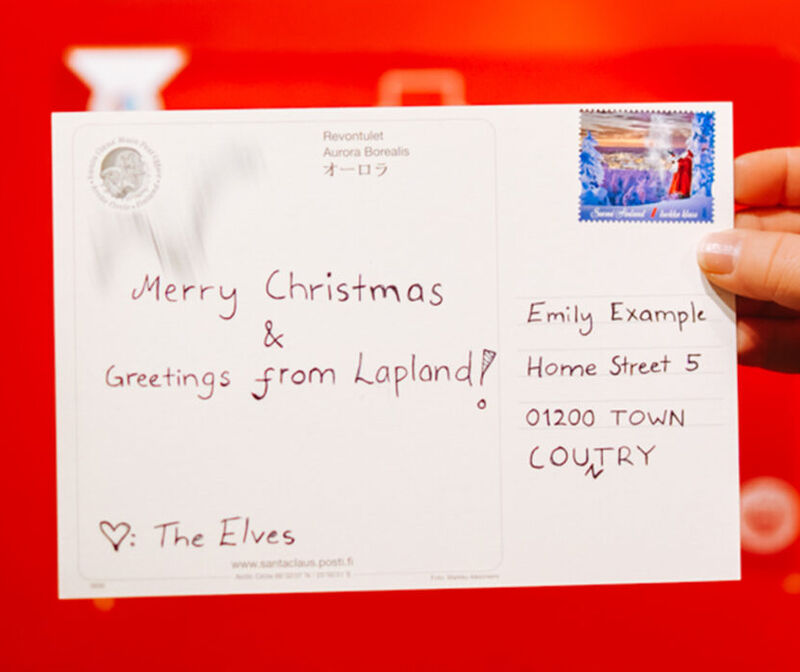 Revontulet
Aurora Borealis
オーロラ
Suomi Finland 1 luokka klass
Merry Christmas
&
Greetings from Lapland!
Emily Example
Home Street 5
01200 TOWN
COUNTRY
♡: The Elves
www.santaclaus.posti.fi